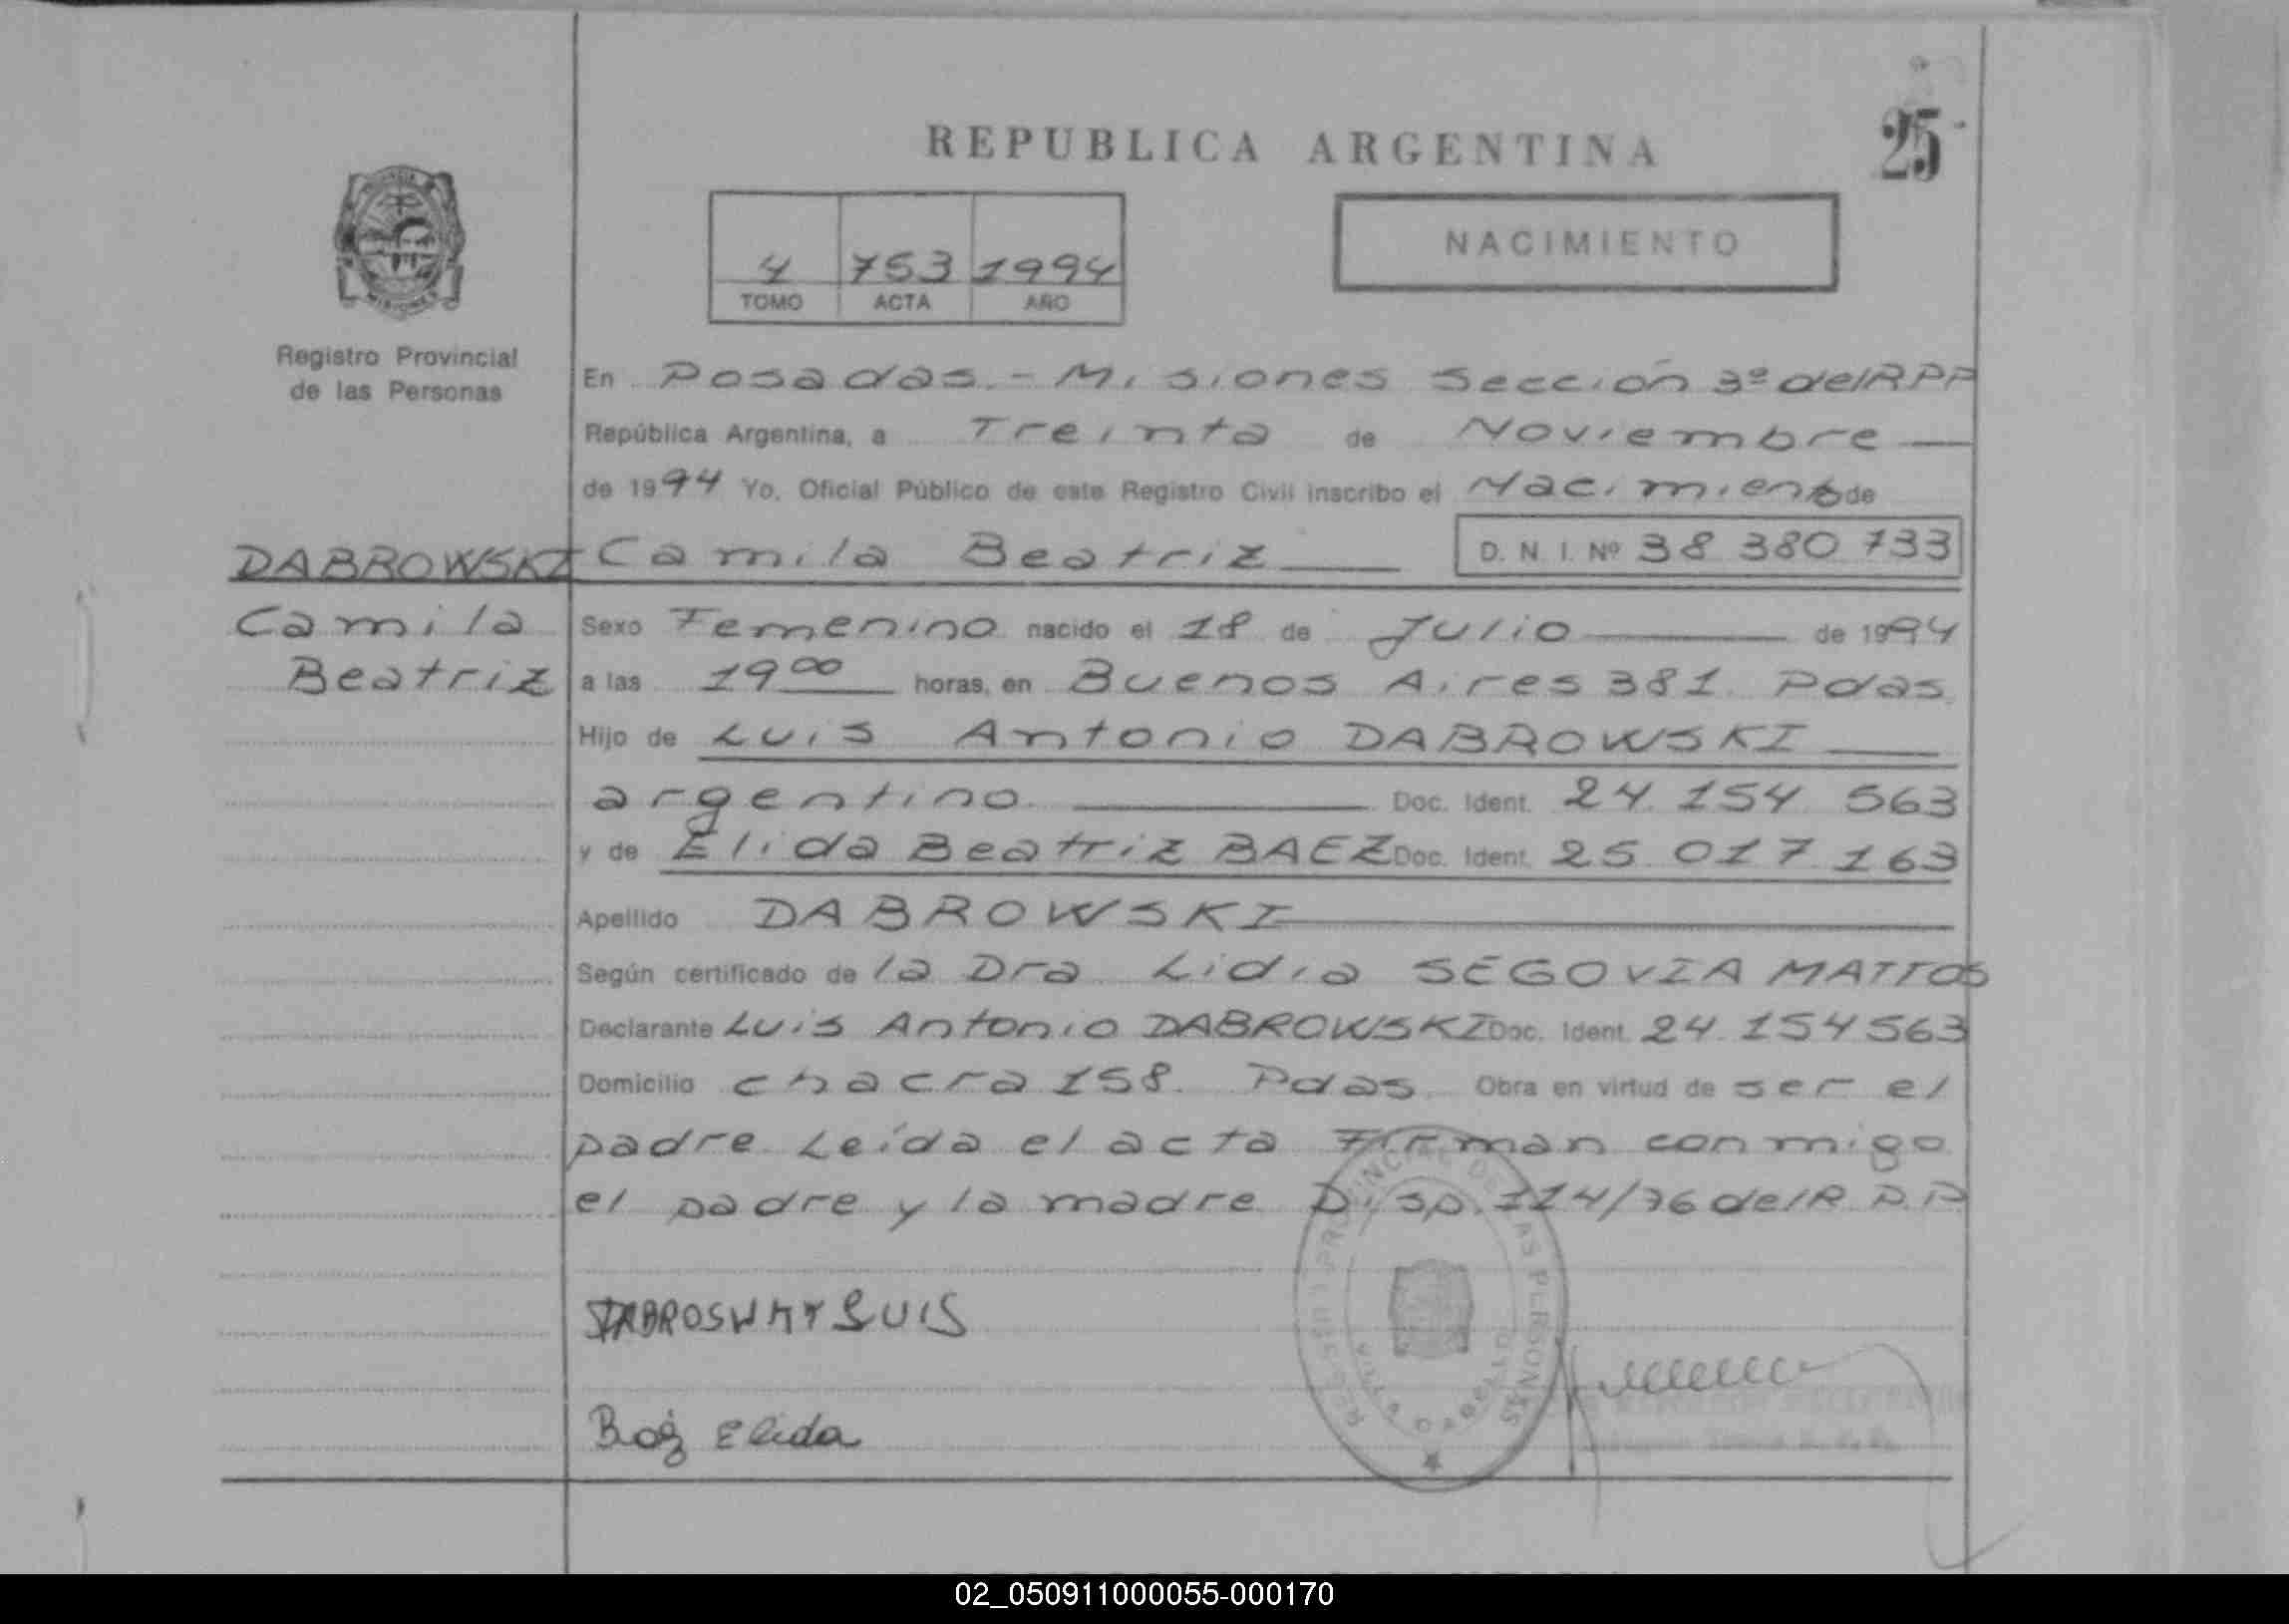 REPUBLICA ARGENTINA
25
4 753 1994
TOMO ACTA AÑO
NACIMIENTO
Registro Provincial
de las Personas
En Posadas.- Misiones Sección 3º del R P P
República Argentina, a Treinta de Noviembre
de 1994 Yo, Oficial Público de este Registro Civil inscribo el Nacimiento de
DABROWSKI Camila Beatriz D. N. I. Nº 38 380 733
Camila
Beatriz
Sexo Femenino nacido el 18 de Julio de 1994
a las 19 00 horas, en Buenos Aires 381. Pdas.
Hijo de Luis Antonio DABROWSKI
argentino Doc. Ident. 24. 154 563
y de Elida Beatriz BAEZ Doc. Ident. 25. 017. 163
Apellido DABROWSKI
Según certificado de la Dra Lidia SEGOVIA MATTOS
Declarante Luis Antonio DABROWSKI Doc. Ident. 24. 154 563
Domicilio chacra 158. Pdas. Obra en virtud de ser el
padre. Leída el acta Firman conmigo
el padre y la madre. Disp. 114/76 del R. P. P.
REGISTRO PROVINCIAL DE LAS PERSONAS
DABROSWKY LUIS
Baéz Elida
02_050911000055-000170